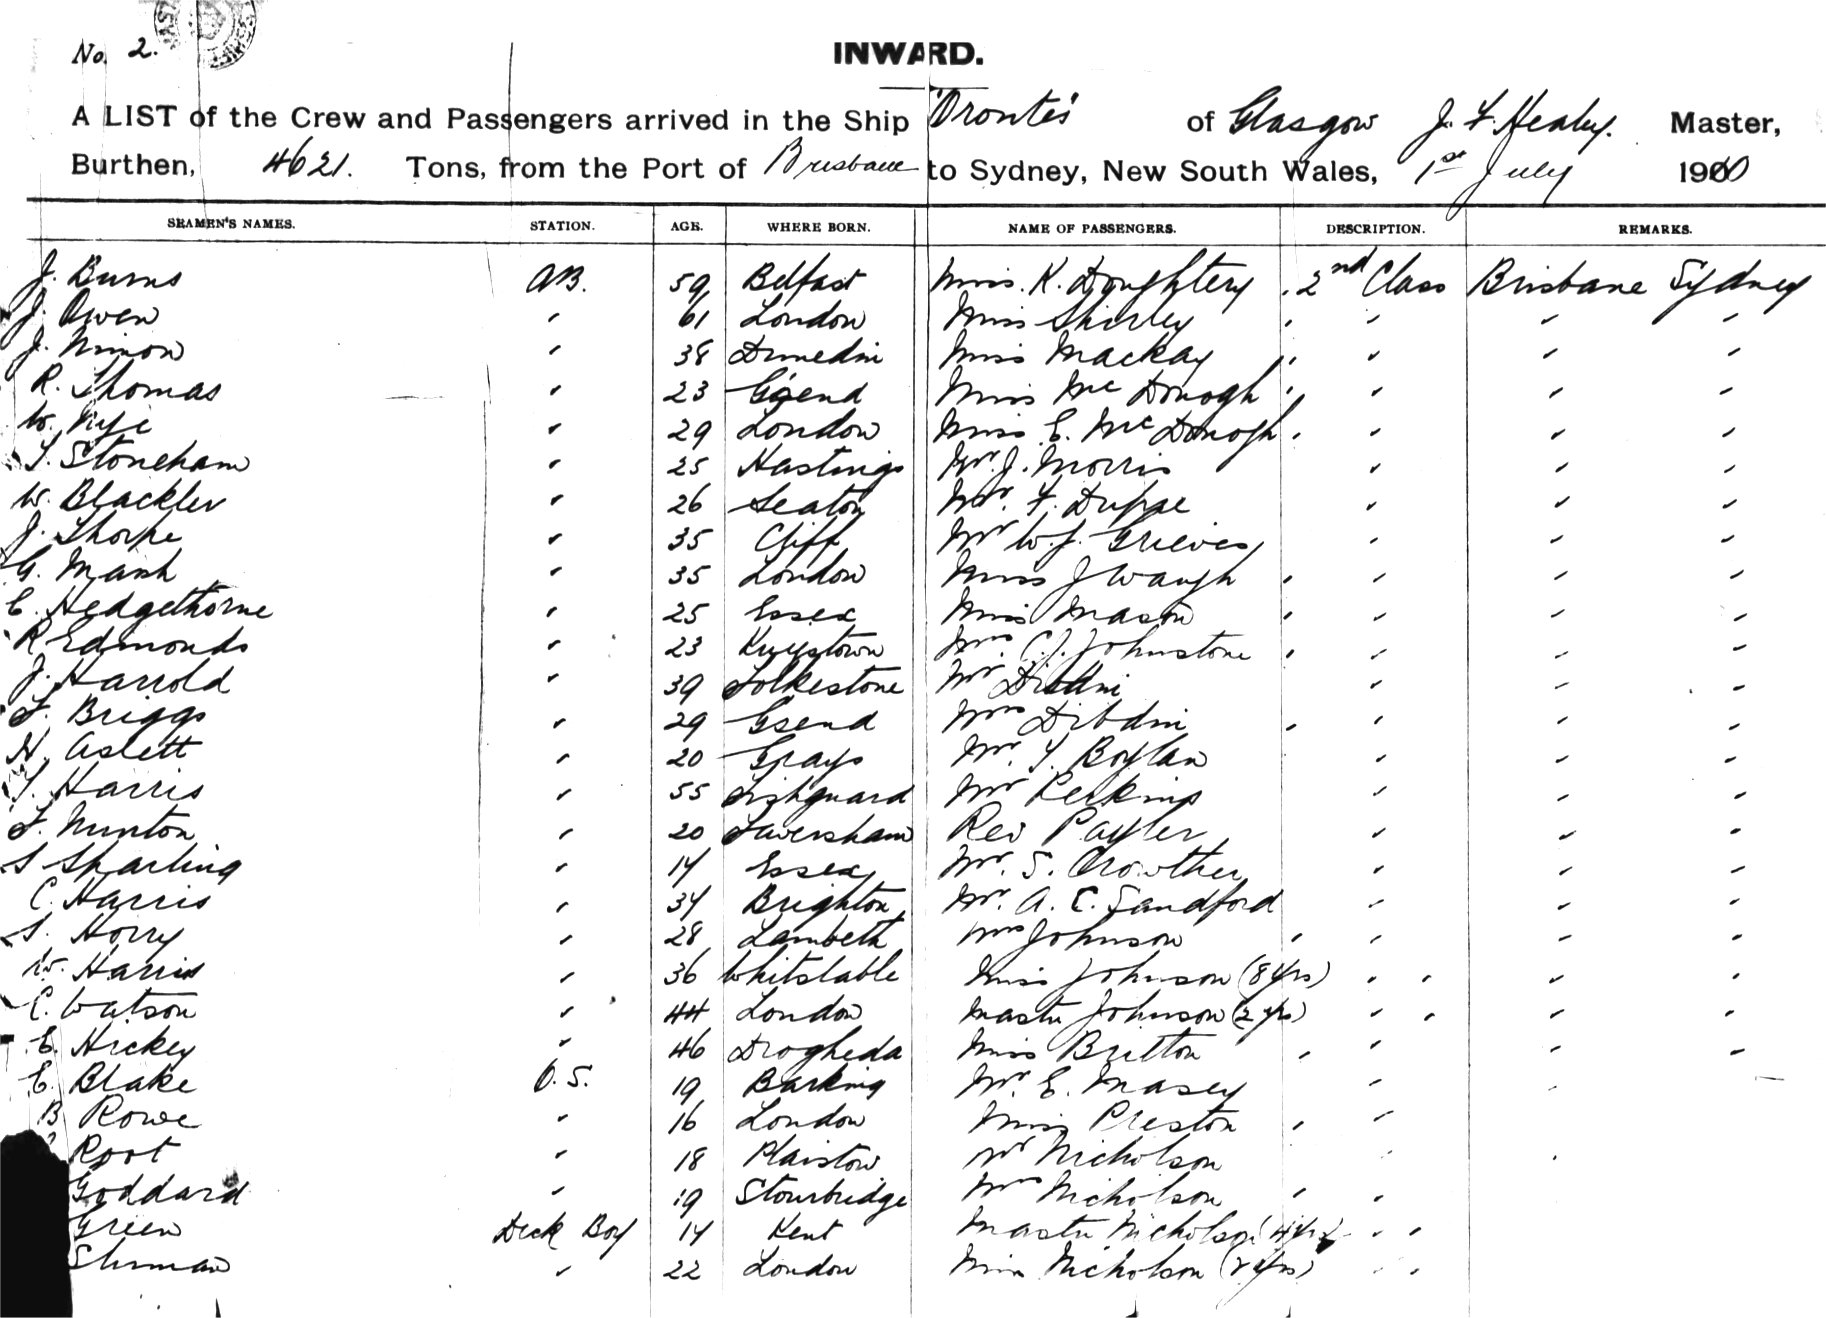 No. 2.
INWARD.
A LIST of the Crew and Passengers arrived in the Ship "Orontes" of Glasgow J. F. Healey. Master,
Burthen, 4621. Tons, from the Port of Brisbane to Sydney, New South Wales, 1st July 1900
SEAMEN'S NAMES. STATION. AGE. WHERE BORN. NAME OF PASSENGERS. DESCRIPTION. REMARKS.
J. Burns AB. 59 Belfast Miss. K. Doughtery 2nd Class Brisbane Sydney
J. Owen " 61 London Miss Shirley " " "
J. Nimon " 38 Dunedin Miss Mackay " " "
R. Thomas " 23 G'send Miss McDonogh " " "
W. Nye " 29 London Miss E. McDonogh " " "
T. Stoneham " 25 Hastings Mr. J. Morris " " "
W. Blackler " 26 Seaton Mr. F. Dupre " " "
J. Thorpe " 35 Cliff Mr W. J. Grieves " " "
G. Mash " 35 London Miss J Waugh " " "
E. Hedgethorne " 25 Essex Miss Mason " " "
R Edmonds " 23 Mrs. C. J. Johnstone " " "
J. Harrold 39 Folkestone Mr Dibdin " " "
F. Briggs " 29 Gsend Mrs Dibdin " " "
H. Aslett " 20 Grays Mr. T. Boylan " " "
T. Harris " 55 Fishguard Mr Perkins " " "
F. Nunton " 20 Faversham Rev Payler " " "
S Sparling " 17 Essex Mr. S. Crowther " " "
C. Harris " 34 Brighton Mr. A. C. Sandford " " "
S. Horry " 28 Lambeth Mrs Johnson " " "
W. Harris " 36 Whitstable Miss Johnson (8 yrs) " " "
C. Watson " 44 London Master Johnson (2 yrs) " " "
E. Hickey " 46 Drogheda Miss Britton " " "
E. Blake O.S. 19 Barking Mr. E. Masey "
B Rowe " 16 London Miss Preston "
Root " 18 Plaistow Mr Nicholson
Goddard " 19 Stourbridge Mrs Nicholson "
Green Deck Boy 17 Kent Master Nicholson (4 yrs) "
Shuman " 22 London Miss Nicholson (2 yrs) "